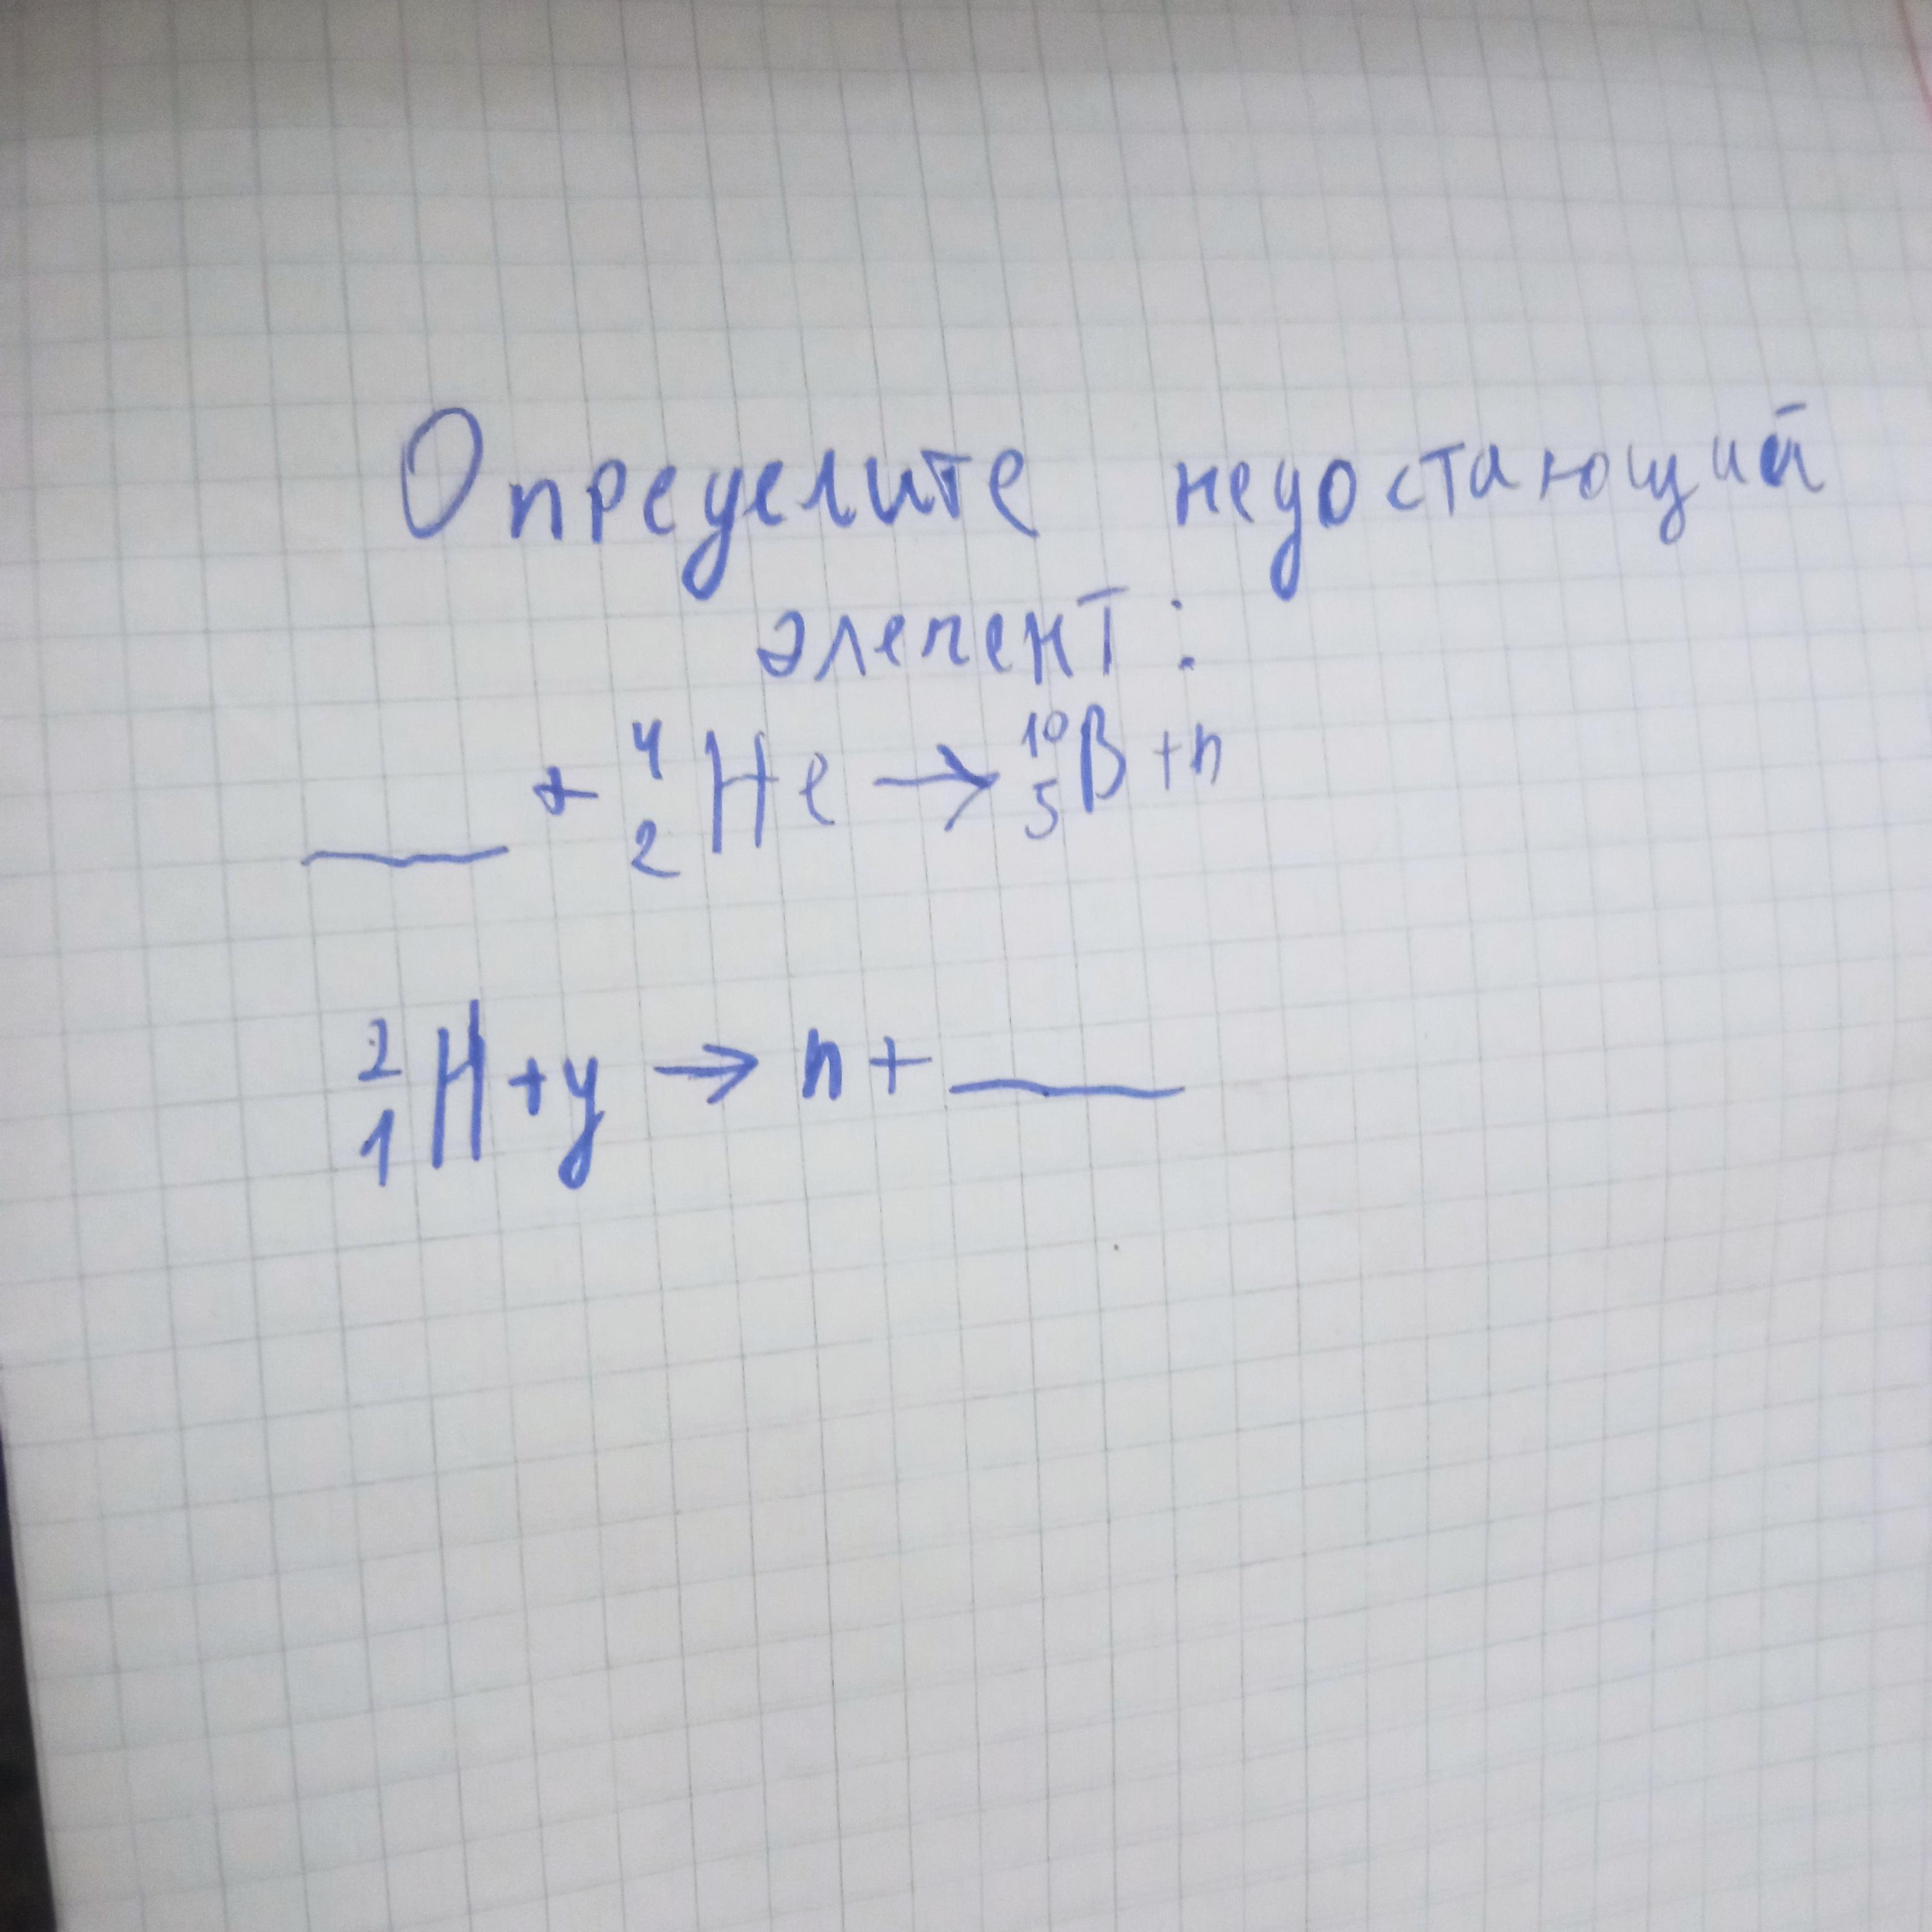 Определите недостающий
элемент:
___ + ⁴₂He → ¹⁰₅B + n
²₁H + y → n + ___